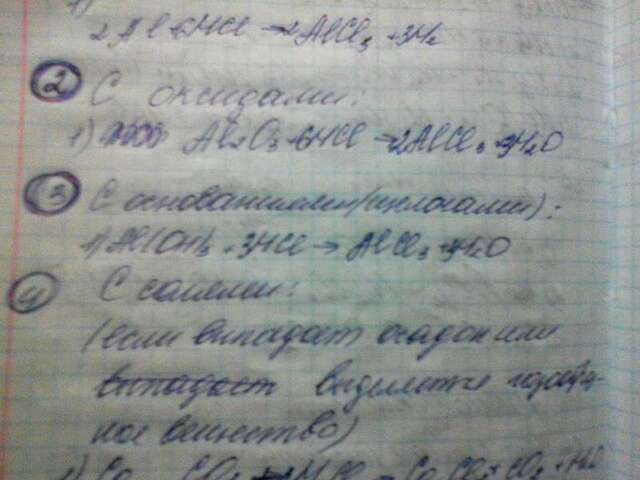 1)
2Al+6HCl → 2AlCl₃ + 3H₂
2 С оксидами:
1) Al₂O₃+6HCl → 2AlCl₃ + 3H₂O
3 С основаниями/щелочами):
1) Al(OH)₃ + 3HCl → AlCl₃ + 3H₂O
4 С солями:
(если выпадает осадок или
выпадает выделяется газообраз-
ное вещество)
1) Ca CO₃ + 2HCl = CaCl₂ + CO₂ + H₂O